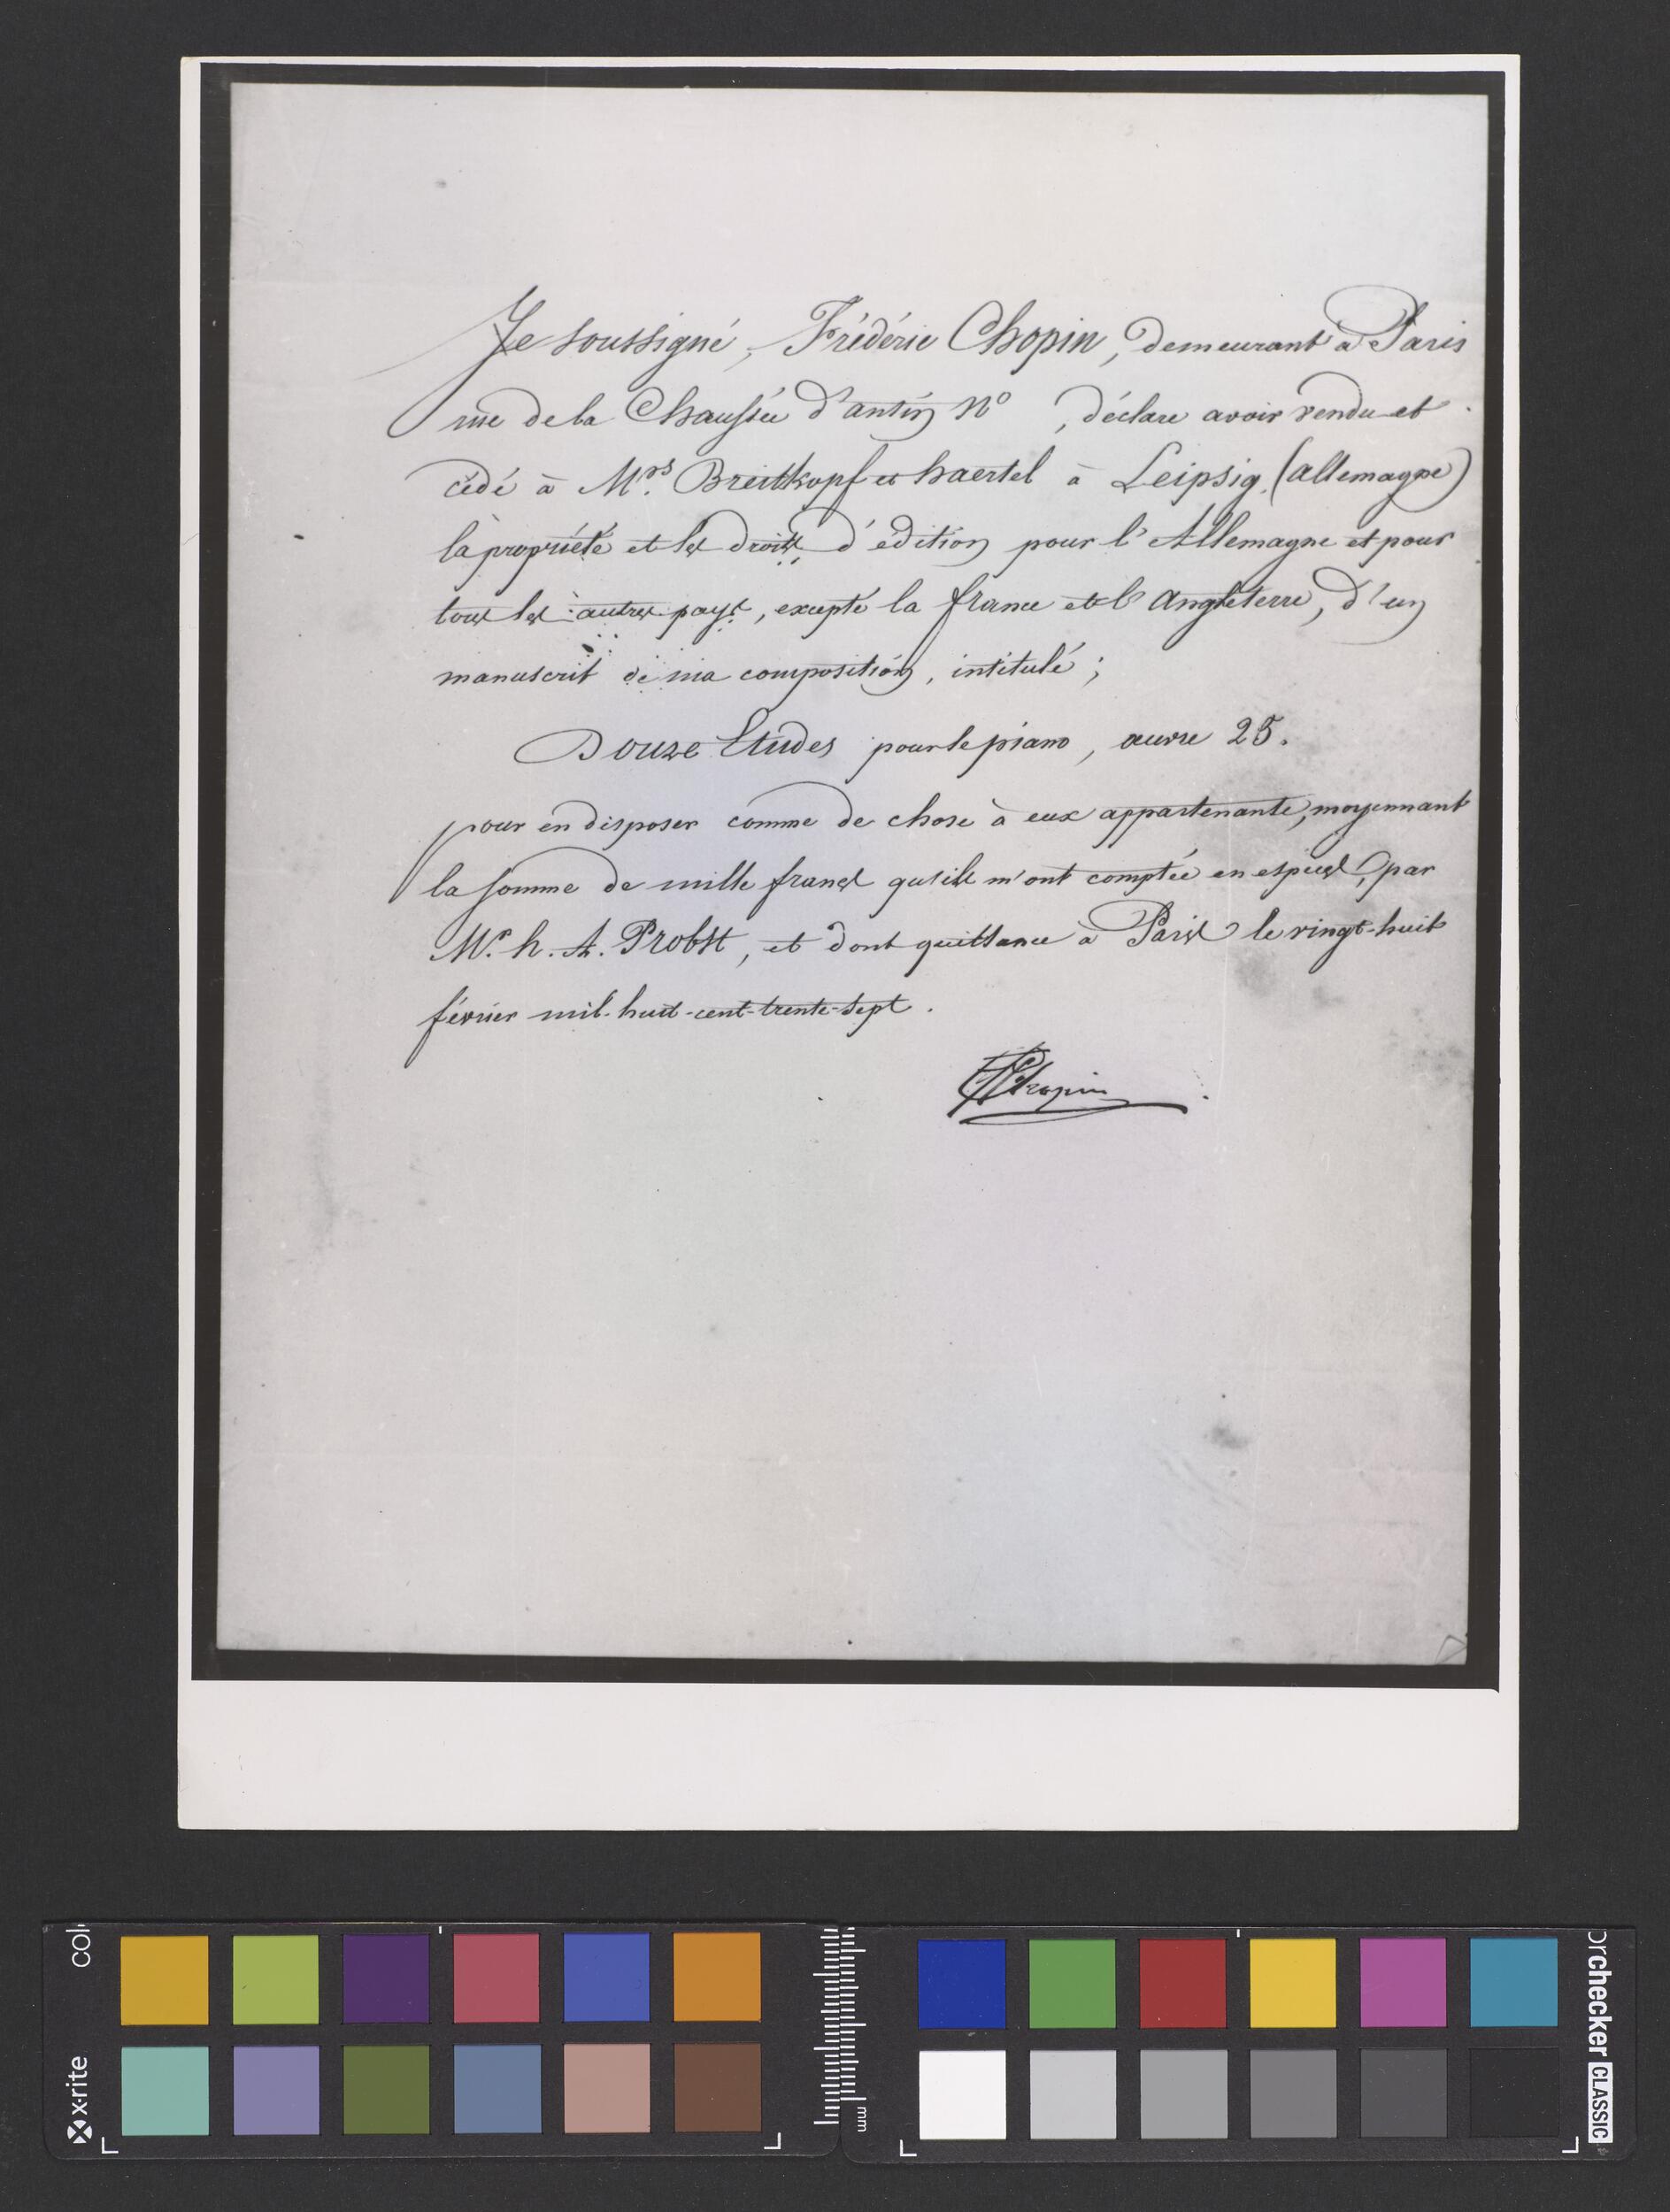 Je soussigné, Frédéric Chopin, demeurant à Paris
rue de la Chaussée d'antin N° , déclare avoir vendu et
cédé à Mrs. Breitkopf et haertel à Leipsig, (allemagne)
la propriété et les droits d'édition pour l'Allemagne et pour
tous les autres pays, excepté la france et l'Angleterre, d'un
manuscrit de ma composition, intitulé ;
Douze Etudes pour le piano, œuvre 25.
pour en disposer comme de chose à eux appartenante, moyennant
la somme de mille francs qu'ils m'ont comptée en espèces, par
Mr. h. A. Probst, et dont quittance à Paris le vingt-huit
février mil-huit-cent-trente-sept.
FFChopin
col
x-rite
mm
orchecker CLASSIC